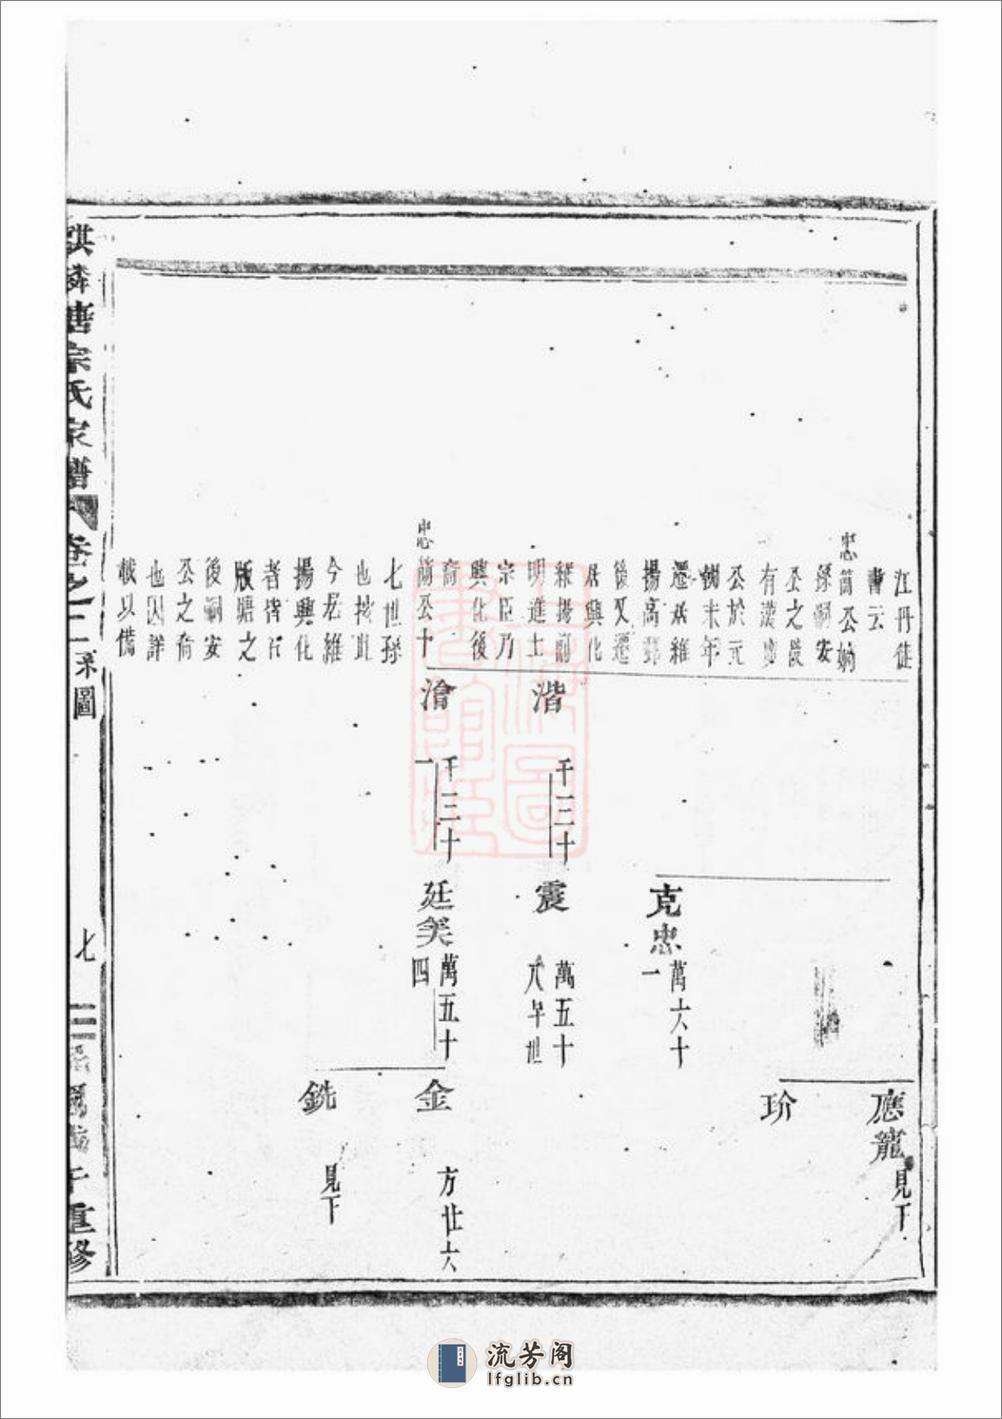 江丹徒
書云
忠簡公嫡
孫嗣安
公之後
有諱
公於元
朝末年
遷居維
揚高郵
後又遷
居興化
維揚
明進士
宗臣乃
興化後
裔
忠簡公十
七世孫
也
今居維
揚興化
者皆
版塘之
後嗣安
公之裔
也因詳
載以備
湝
千三十
澮
千三十一
克忠
萬六十一
震
萬五十八早世
廷美
萬五十四
應龍
見下
玠
金
方廿六
銑
見下
麒麟塘宗氏家譜
卷之二
系圖
七
午重修
流芳阁
lfglib.cn